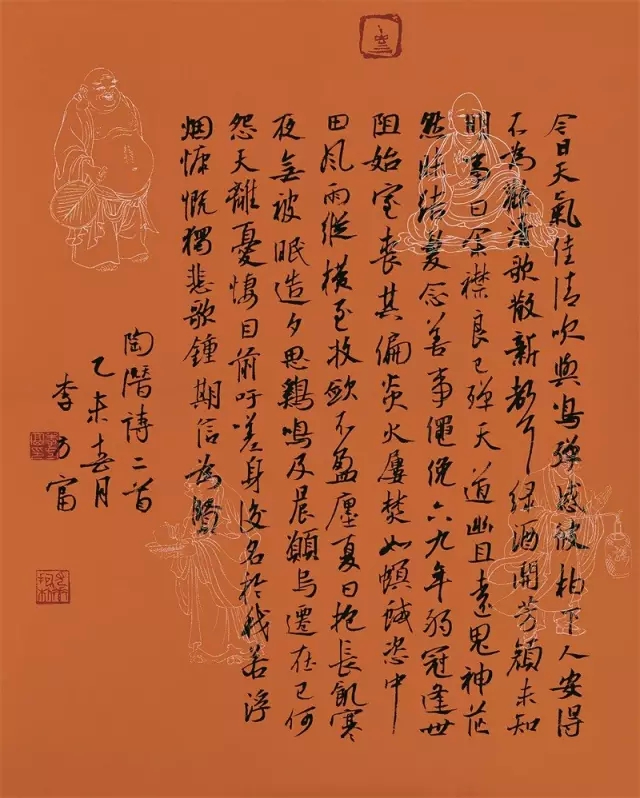 今日天氣佳清吹與鳴弹感彼柏下人安得
不為歡清歌散新声绿酒開芳颜未知
明事日余襟良已殚天道幽且遠鬼神茫
然昧结髮念善事僶俛六九年弱冠逢世
阻始室丧其偏炎火屢焚如螟蜮恣中
田風雨縱横至收斂不盈廛夏日抱長飢寒
夜無被眠造夕思鷄鳴及晨願烏遷在己何
怨天離憂悽目前吁嗟身後名於我若浮
烟慷慨獨悲歌鍾期信為賢
陶潛詩二首
乙未春月
李富